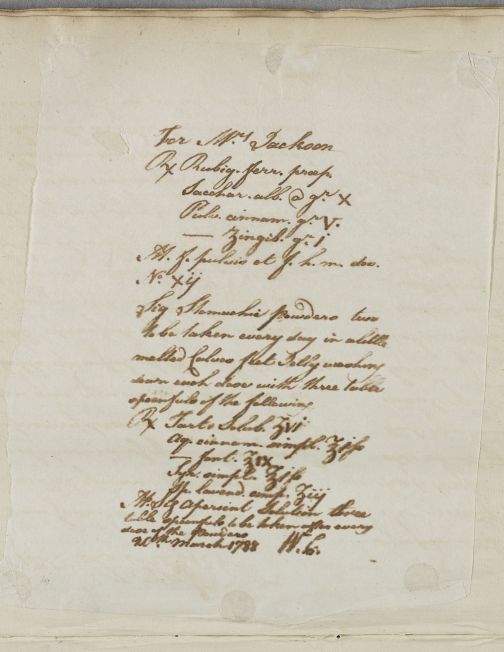 For Mrs Jackson
Rx Rubig. ferr. præp.
Sacchar. alb. @ gr x
Pulv. cinnam. gr v.
— Zingib. gr j
M. f. pulvis et f. h. m. dos.
No xij
Sig Stomachic Powders two
to be taken every day in a little
melted Calves feet Jelly washing
down each dose with three table
spoonfuls of the following
Rx Tart. Solub. ʒvj
Aq. cinnam. simpl. ℥jss
— font. ℥ix
Syr. simpl. ℥jss
Sp. lavend. comp. ʒij
M. Sig Aperient Solution three
table spoonfuls to be taken after every
dose of the Powders
March 1788 W. C.